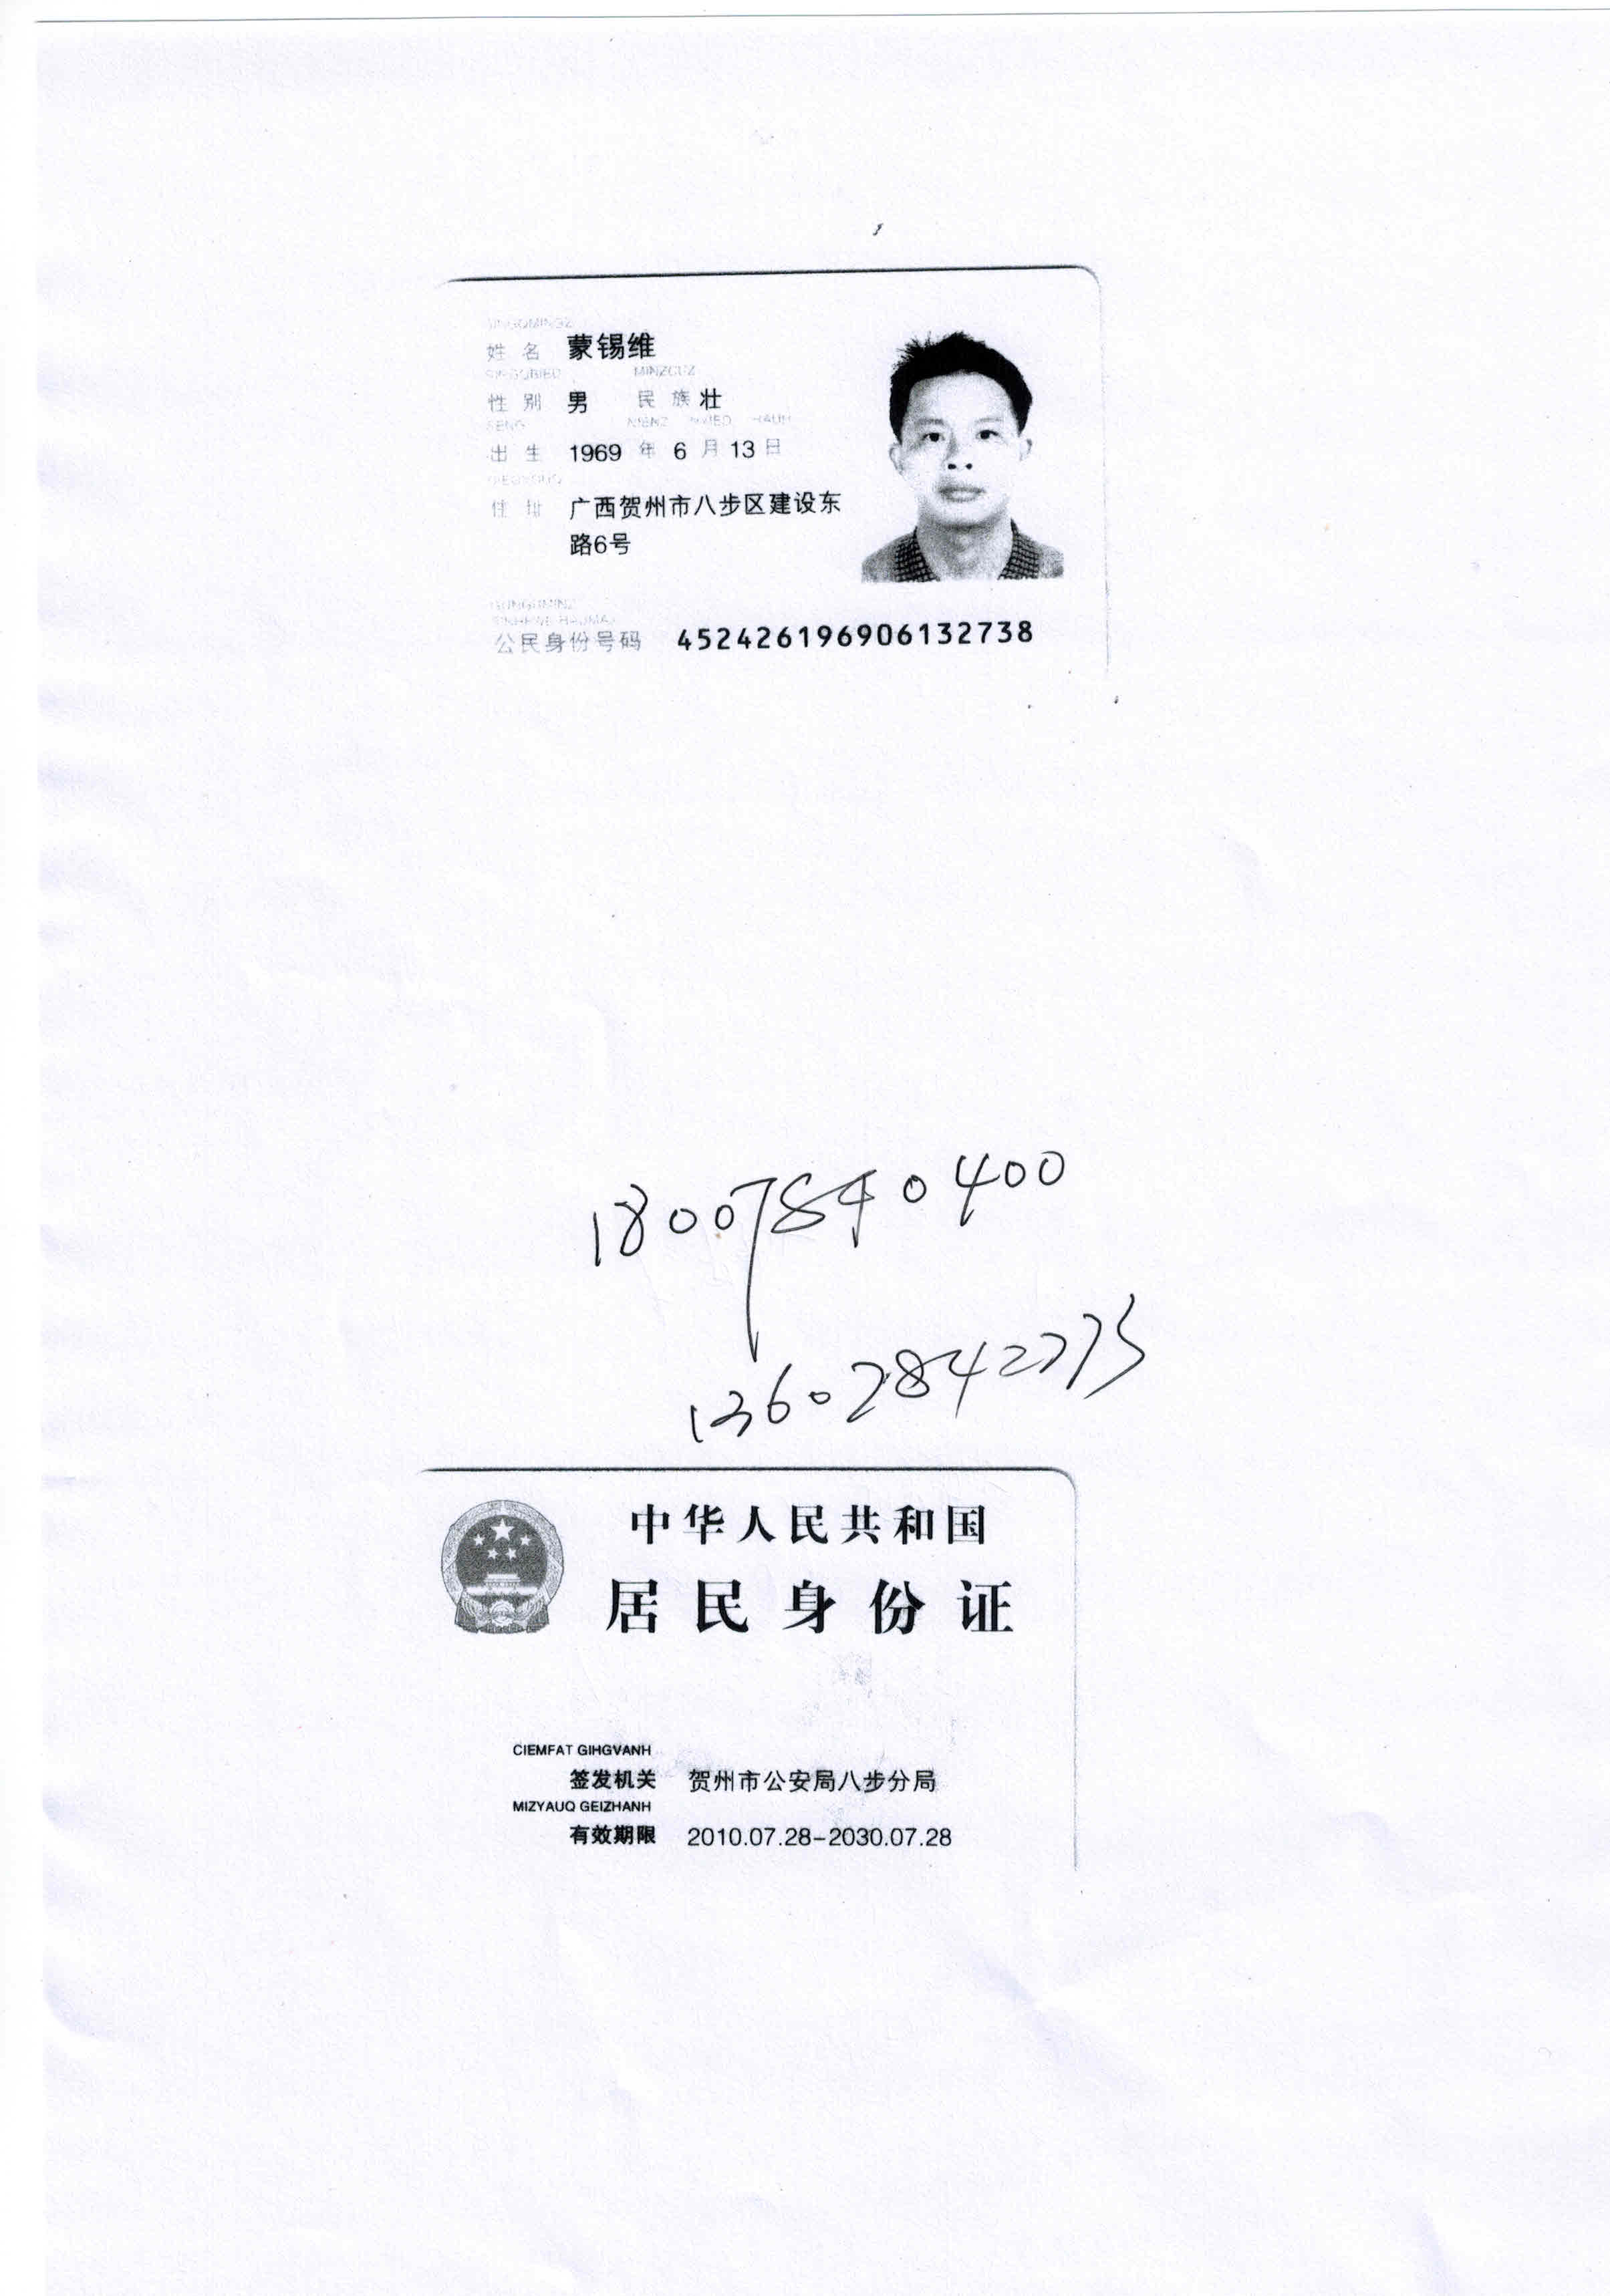 姓名 蒙锡维
MINZCUZ
性别 男 民族 壮
出生 1969 年 6 月 13 日
住址 广西贺州市八步区建设东
路6号
公民身份号码 452426196906132738
18007840400
13602842273
中华人民共和国
居民身份证
CIEMFAT GIHGVANH
签发机关 贺州市公安局八步分局
MIZYAUQ GEIZHANH
有效期限 2010.07.28-2030.07.28